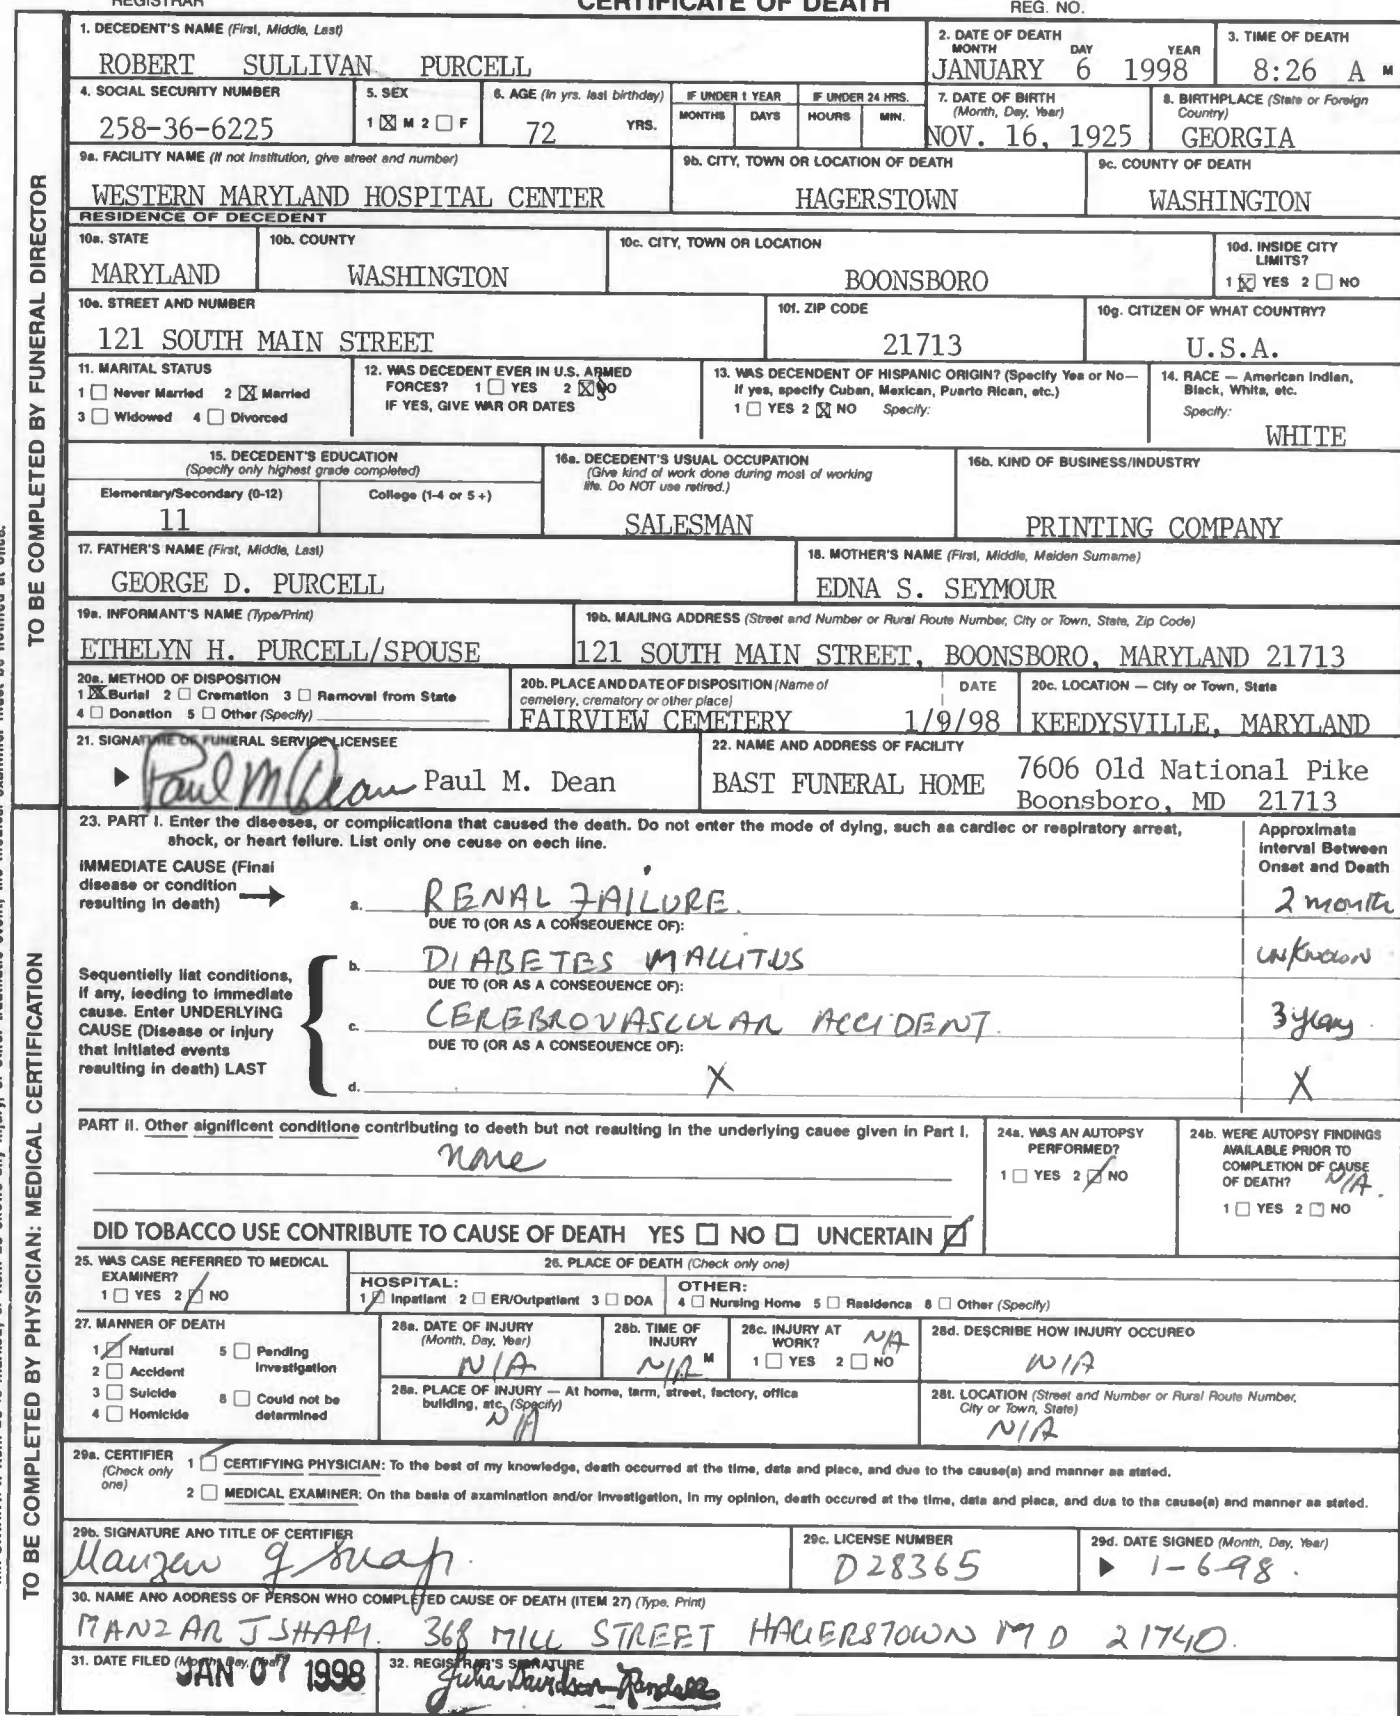 REGISTRAR
CERTIFICATE OF DEATH
REG. NO.
TO BE COMPLETED BY FUNERAL DIRECTOR
1. DECEDENT'S NAME (First, Middle, Last)
ROBERT SULLIVAN PURCELL
2. DATE OF DEATH
MONTH DAY YEAR
JANUARY 6 1998
3. TIME OF DEATH
8:26 A M
4. SOCIAL SECURITY NUMBER
258-36-6225
5. SEX
1 ☒ M 2 ☐ F
6. AGE (In yrs. last birthday)
72 YRS.
IF UNDER 1 YEAR
MONTHS DAYS
IF UNDER 24 HRS.
HOURS MIN.
7. DATE OF BIRTH
(Month, Day, Year)
NOV. 16, 1925
8. BIRTHPLACE (State or Foreign
Country)
GEORGIA
9a. FACILITY NAME (If not institution, give street and number)
WESTERN MARYLAND HOSPITAL CENTER
9b. CITY, TOWN OR LOCATION OF DEATH
HAGERSTOWN
9c. COUNTY OF DEATH
WASHINGTON
RESIDENCE OF DECEDENT
10a. STATE
MARYLAND
10b. COUNTY
WASHINGTON
10c. CITY, TOWN OR LOCATION
BOONSBORO
10d. INSIDE CITY
LIMITS?
1 ☒ YES 2 ☐ NO
10e. STREET AND NUMBER
121 SOUTH MAIN STREET
10f. ZIP CODE
21713
10g. CITIZEN OF WHAT COUNTRY?
U.S.A.
11. MARITAL STATUS
1 ☐ Never Married 2 ☒ Married
3 ☐ Widowed 4 ☐ Divorced
12. WAS DECEDENT EVER IN U.S. ARMED
FORCES? 1 ☐ YES 2 ☒ NO
IF YES, GIVE WAR OR DATES
13. WAS DECENDENT OF HISPANIC ORIGIN? (Specify Yes or No—
If yes, specify Cuban, Mexican, Puerto Rican, etc.)
1 ☐ YES 2 ☒ NO Specify:
14. RACE — American Indian,
Black, White, etc.
Specify:
WHITE
15. DECEDENT'S EDUCATION
(Specify only highest grade completed)
Elementary/Secondary (0-12) College (1-4 or 5+)
11
16a. DECEDENT'S USUAL OCCUPATION
(Give kind of work done during most of working
life. Do NOT use retired.)
SALESMAN
16b. KIND OF BUSINESS/INDUSTRY
PRINTING COMPANY
17. FATHER'S NAME (First, Middle, Last)
GEORGE D. PURCELL
18. MOTHER'S NAME (First, Middle, Maiden Surname)
EDNA S. SEYMOUR
19a. INFORMANT'S NAME (Type/Print)
ETHELYN H. PURCELL/SPOUSE
19b. MAILING ADDRESS (Street and Number or Rural Route Number, City or Town, State, Zip Code)
121 SOUTH MAIN STREET, BOONSBORO, MARYLAND 21713
20a. METHOD OF DISPOSITION
1 ☒ Burial 2 ☐ Cremation 3 ☐ Removal from State
4 ☐ Donation 5 ☐ Other (Specify)
20b. PLACE AND DATE OF DISPOSITION (Name of
cemetery, crematory or other place) DATE
FAIRVIEW CEMETERY 1/9/98
20c. LOCATION — City or Town, State
KEEDYSVILLE, MARYLAND
21. SIGNATURE OF FUNERAL SERVICE LICENSEE
Paul M Dean Paul M. Dean
22. NAME AND ADDRESS OF FACILITY
BAST FUNERAL HOME 7606 Old National Pike
Boonsboro, MD 21713
TO BE COMPLETED BY PHYSICIAN: MEDICAL CERTIFICATION
23. PART I. Enter the diseases, or complications that caused the death. Do not enter the mode of dying, such as cardiac or respiratory arrest,
shock, or heart failure. List only one cause on each line.
Approximate
Interval Between
Onset and Death
IMMEDIATE CAUSE (Final
disease or condition
resulting in death)
a. RENAL FAILURE 2 month
DUE TO (OR AS A CONSEQUENCE OF):
Sequentially list conditions,
if any, leading to immediate
cause. Enter UNDERLYING
CAUSE (Disease or injury
that initiated events
resulting in death) LAST
b. DIABETES MALLITUS unknown
DUE TO (OR AS A CONSEQUENCE OF):
c. CEREBROVASCULAR ACCIDENT 3 years
DUE TO (OR AS A CONSEQUENCE OF):
d. X X
PART II. Other significant conditions contributing to death but not resulting in the underlying cause given in Part I.
none
24a. WAS AN AUTOPSY
PERFORMED?
1 ☐ YES 2 ☑ NO
24b. WERE AUTOPSY FINDINGS
AVAILABLE PRIOR TO
COMPLETION OF CAUSE
OF DEATH? N/A
1 ☐ YES 2 ☐ NO
DID TOBACCO USE CONTRIBUTE TO CAUSE OF DEATH YES ☐ NO ☐ UNCERTAIN ☑
25. WAS CASE REFERRED TO MEDICAL
EXAMINER?
1 ☐ YES 2 ☑ NO
26. PLACE OF DEATH (Check only one)
HOSPITAL:
1 ☑ Inpatient 2 ☐ ER/Outpatient 3 ☐ DOA
OTHER:
4 ☐ Nursing Home 5 ☐ Residence 6 ☐ Other (Specify)
27. MANNER OF DEATH
1 ☑ Natural 5 ☐ Pending
Investigation
2 ☐ Accident
3 ☐ Suicide 6 ☐ Could not be
determined
4 ☐ Homicide
28a. DATE OF INJURY
(Month, Day, Year)
N/A
28b. TIME OF
INJURY
N/A M
28c. INJURY AT
WORK? N/A
1 ☐ YES 2 ☐ NO
28d. DESCRIBE HOW INJURY OCCURED
N/A
28e. PLACE OF INJURY — At home, farm, street, factory, office
building, etc. (Specify)
N/A
28f. LOCATION (Street and Number or Rural Route Number,
City or Town, State)
N/A
29a. CERTIFIER
(Check only
one)
1 ☑ CERTIFYING PHYSICIAN: To the best of my knowledge, death occurred at the time, date and place, and due to the cause(s) and manner as stated.
2 ☐ MEDICAL EXAMINER: On the basis of examination and/or investigation, in my opinion, death occured at the time, date and place, and due to the cause(s) and manner as stated.
29b. SIGNATURE AND TITLE OF CERTIFIER
29c. LICENSE NUMBER
D28365
29d. DATE SIGNED (Month, Day, Year)
1-6-98.
30. NAME AND ADDRESS OF PERSON WHO COMPLETED CAUSE OF DEATH (ITEM 27) (Type, Print)
MANZAR J SHAFI. 368 MILL STREET HAGERSTOWN MD 21740.
31. DATE FILED (Month, Day, Year)
JAN 07 1998
32. REGISTRAR'S SIGNATURE
Julia Davidson-Randall